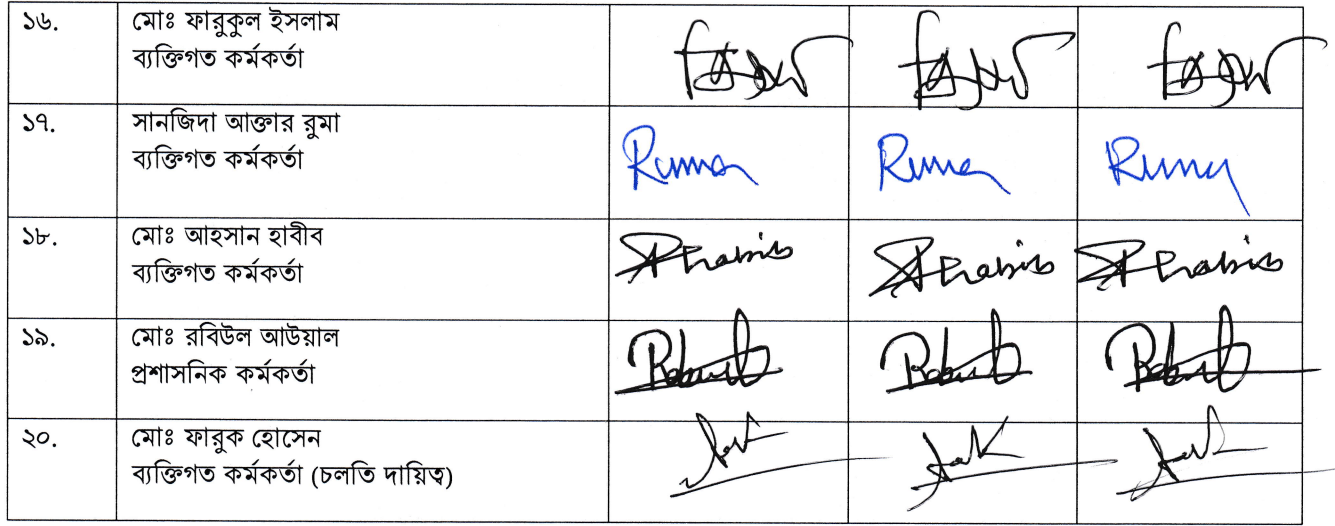 ১৬.
মোঃ ফারুকুল ইসলাম
ব্যক্তিগত কর্মকর্তা
১৭.
সানজিদা আক্তার রুমা
ব্যক্তিগত কর্মকর্তা
Ruma Ruma Ruma
১৮.
মোঃ আহসান হাবীব
ব্যক্তিগত কর্মকর্তা
১৯.
মোঃ রবিউল আউয়াল
প্রশাসনিক কর্মকর্তা
২০.
মোঃ ফারুক হোসেন
ব্যক্তিগত কর্মকর্তা (চলতি দায়িত্ব)